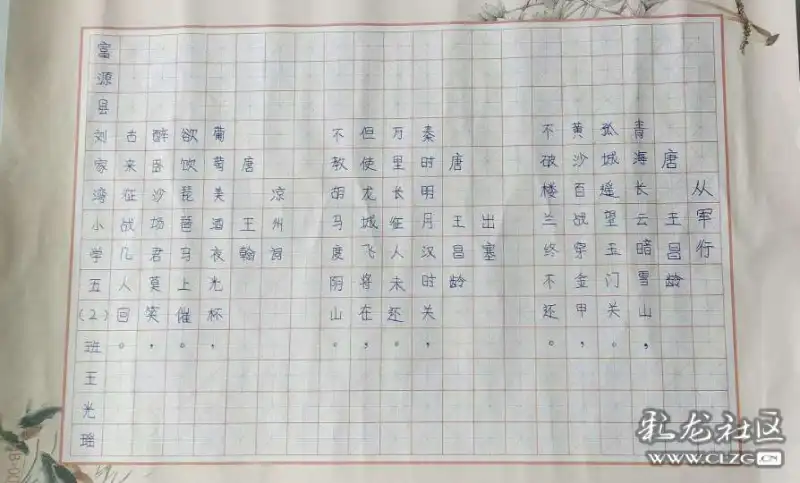 从军行
唐 王昌龄
青海长云暗雪山，
孤城遥望玉门关。
黄沙百战穿金甲，
不破楼兰终不还。
出塞
唐 王昌龄
秦时明月汉时关，
万里长征人未还。
但使龙城飞将在，
不教胡马度阴山。
凉州词
唐 王翰
葡萄美酒夜光杯，
欲饮琵琶马上催。
醉卧沙场君莫笑，
古来征战几人回。
富源县刘家湾小学五(2)班王光瑶
彩龙社区
WWW.CLZG.CN